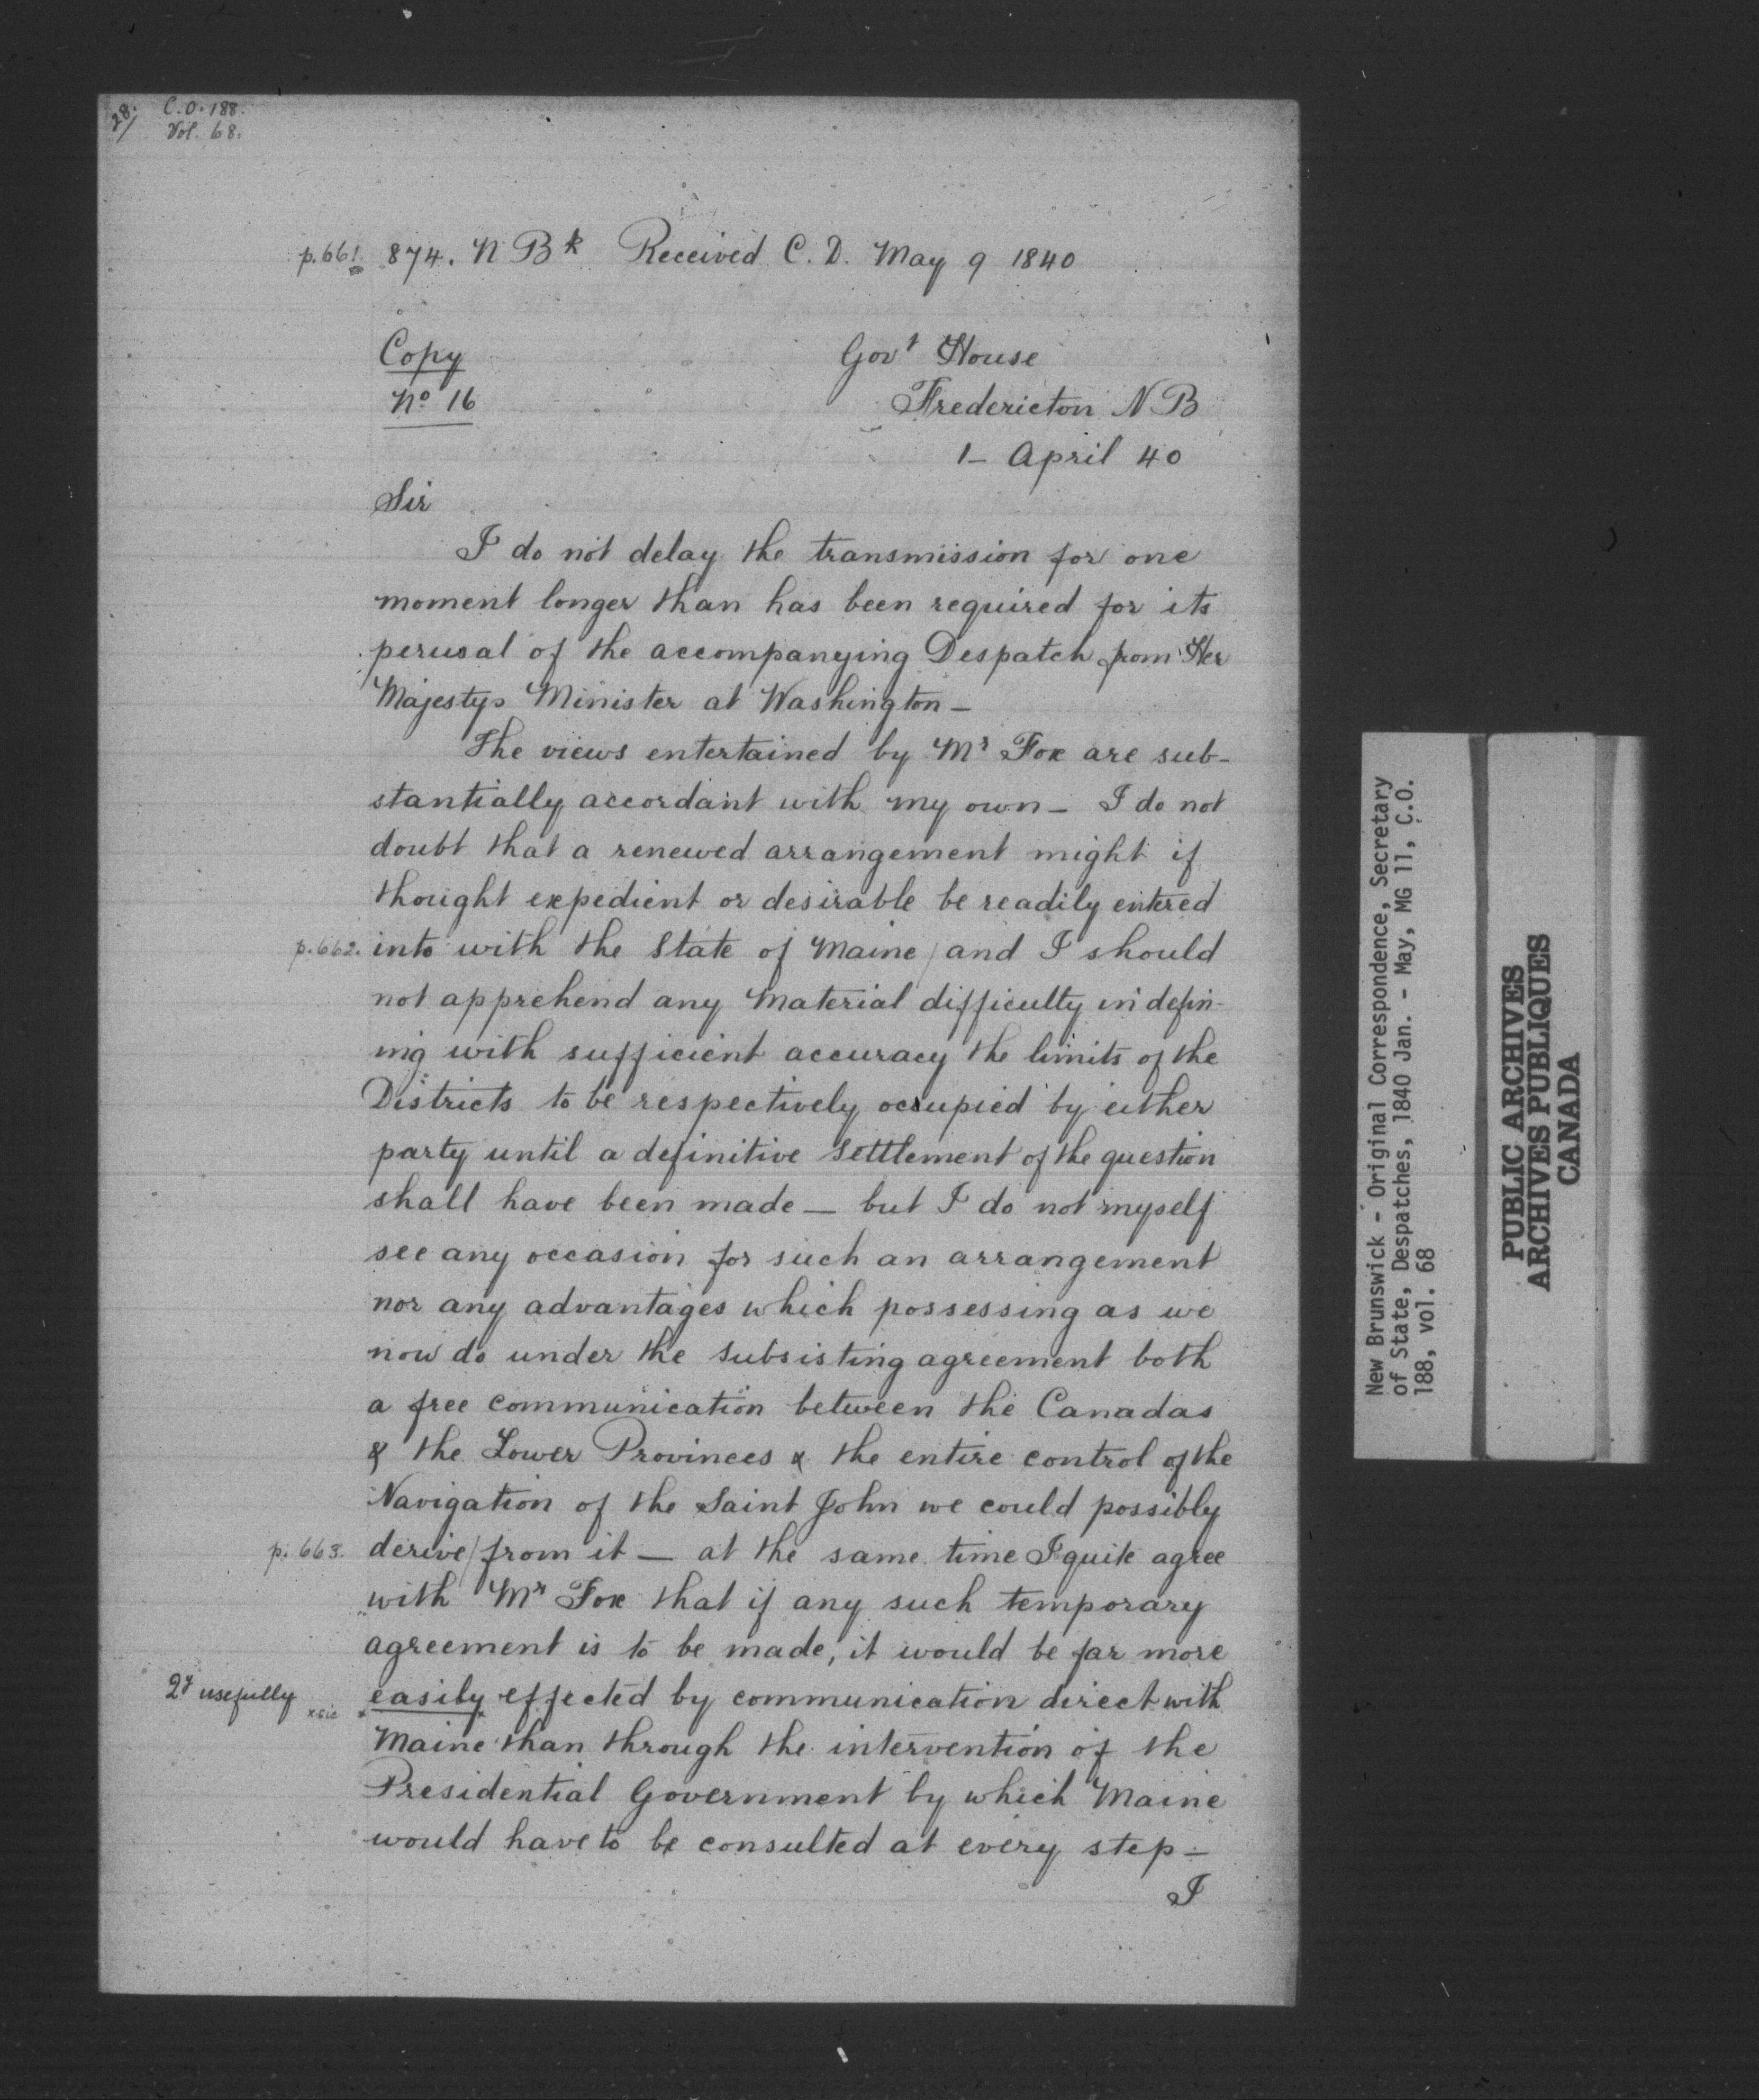 28/
C.O. 188.
Vol. 68.
p.661. 874. N Bk Received C. D. May 9 1840
Copy
No 16
Govt House
Fredericton N B
1- April 40
Sir
I do not delay the transmission for one
moment longer than has been required for its
perusal of the accompanying Despatch from Her
Majestys Minister at Washington -
The views entertained by Mr Fox are sub-
stantially accordant with my own - I do not
doubt that a renewed arrangement might if
thought expedient or desirable be readily entered
p.662. into with the State of Maine / and I should
not apprehend any Material difficulty in defin-
ing with sufficient accuracy the limits of the
Districts to be respectively occupied by either
party until a definitive Settlement of the question
shall have been made — but I do not myself
see any occasion for such an arrangement
nor any advantages which possessing as we
now do under the Subsisting agreement both
a free communication between the Canadas
& the Lower Provinces & the entire control of the
Navigation of the Saint John we could possibly
p. 663. derive / from it — at the same time I quite agree
with Mr Fox that if any such temporary
agreement is to be made, it would be far more
2y usefully x sic x easily x effected by communication direct with
Maine than through the intervention of the
Presidential Government by which Maine
would have to be consulted at every step -
I
New Brunswick - Original Correspondence, Secretary
of State, Despatches, 1840 Jan. - May, MG 11, C.O.
188, vol. 68
PUBLIC ARCHIVES
ARCHIVES PUBLIQUES
CANADA